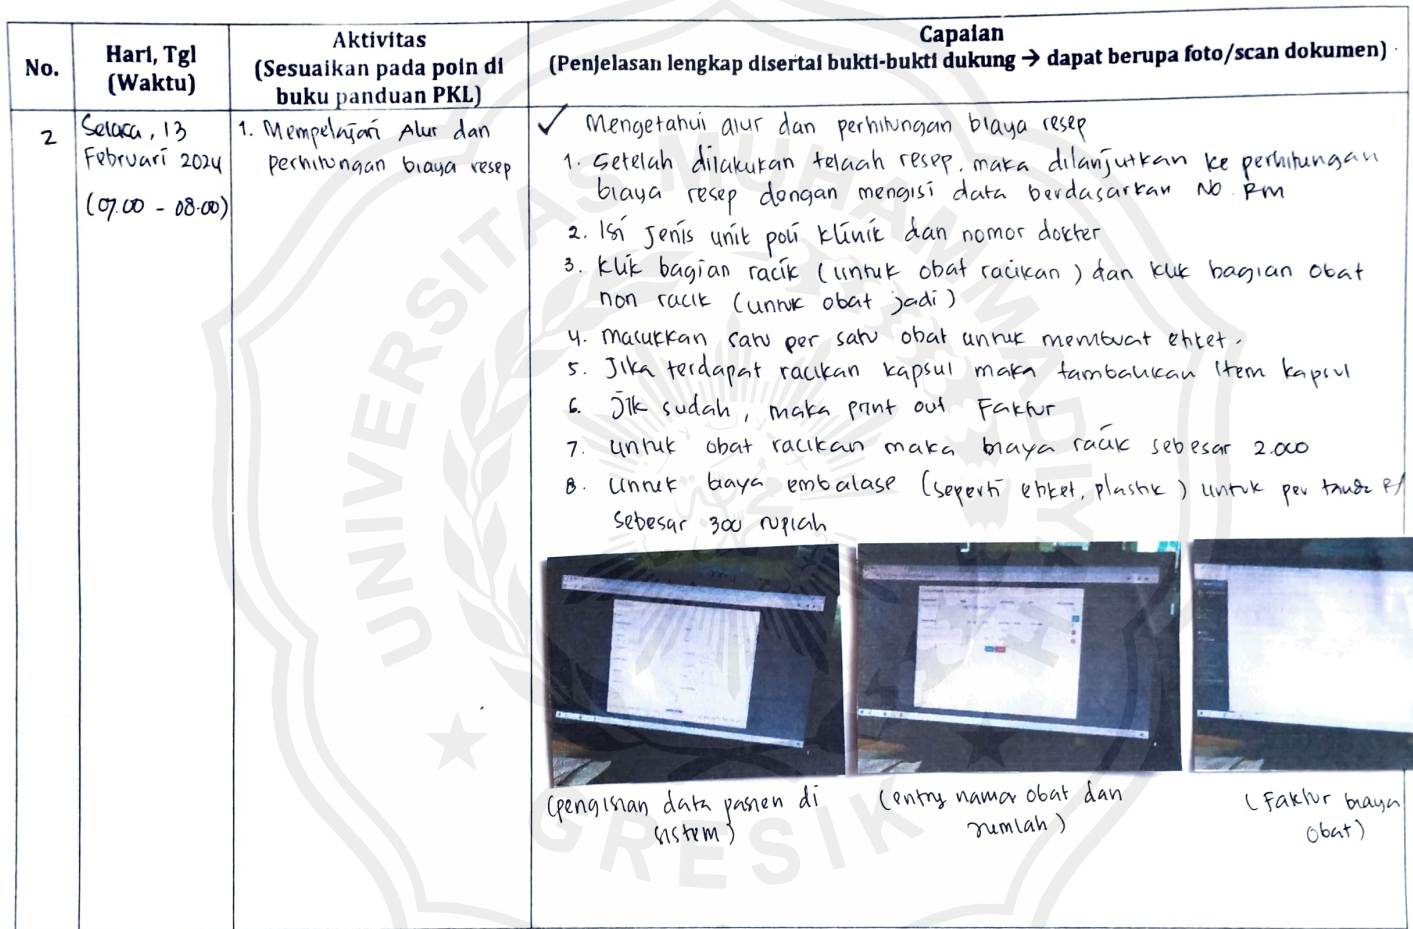 No.
Hari, Tgl
(Waktu)
Aktivitas
(Sesuaikan pada poin di
buku panduan PKL)
Capaian
(Penjelasan lengkap disertai bukti-bukti dukung → dapat berupa foto/scan dokumen)
2
Selasa, 13
Februari 2024
(07.00 - 08.00)
1. Mempelajari Alur dan
perhitungan biaya resep
✓ Mengetahui alur dan perhitungan biaya resep
1. Setelah dilakukan telaah resep, maka dilanjutkan ke perhitungan
biaya resep dengan mengisi data berdasarkan No. RM
2. Isi Jenis unit poli klinik dan nomor dokter
3. Klik bagian racik (untuk obat racikan) dan klik bagian obat
non racik (untuk obat jadi)
4. Masukkan satu per satu obat untuk membuat etiket.
5. Jika terdapat racikan kapsul maka tambahkan Item kapsul
6. Jik sudah, maka print out Faktur
7. Untuk obat racikan maka biaya racik sebesar 2.000
8. Untuk biaya embalase (seperti etiket, plastik) untuk per tanda R/
sebesar 300 rupiah
(pengisian data pasien di
sistem)
(entry nama obat dan
jumlah)
(Faktur biaya
Obat)
UNIVERSITAS MUHAMMADIYAH
GRESIK